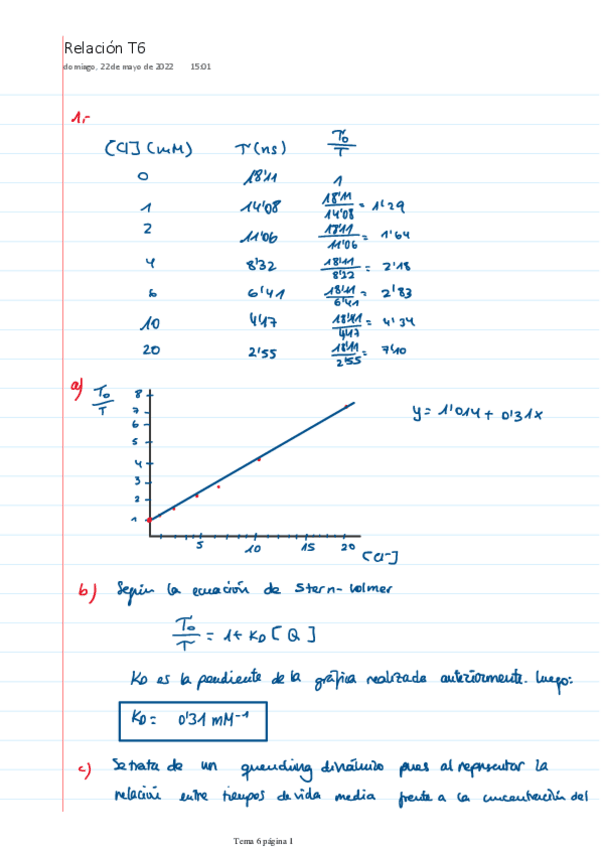 Relación T6
domingo, 22 de mayo de 2022 15:01
1.-
[Cl] (mM) τ (ns) τ₀/τ
0 18'11 1
1 14'08 18'11/14'08 = 1'29
2 11'06 18'11/11'06 = 1'64
4 8'32 18'11/8'32 = 2'18
6 6'41 18'11/6'41 = 2'83
10 4'17 18'11/4'17 = 4'34
20 2'55 18'11/2'55 = 7'10
a) τ₀/τ
8
7
6
5
4
3
2
1
5 10 15 20
[Cl-]
y = 1'014 + 0'31x
b) Según la ecuación de Stern-Volmer
τ₀/τ = 1 + KD [Q]
KD es la pendiente de la gráfica realizada anteriormente. Luego:
KD = 0'31 mM⁻¹
c) Se trata de un quenching dinámico pues al representar la
relación entre tiempos de vida media frente a la concentración del
Tema 6 página 1